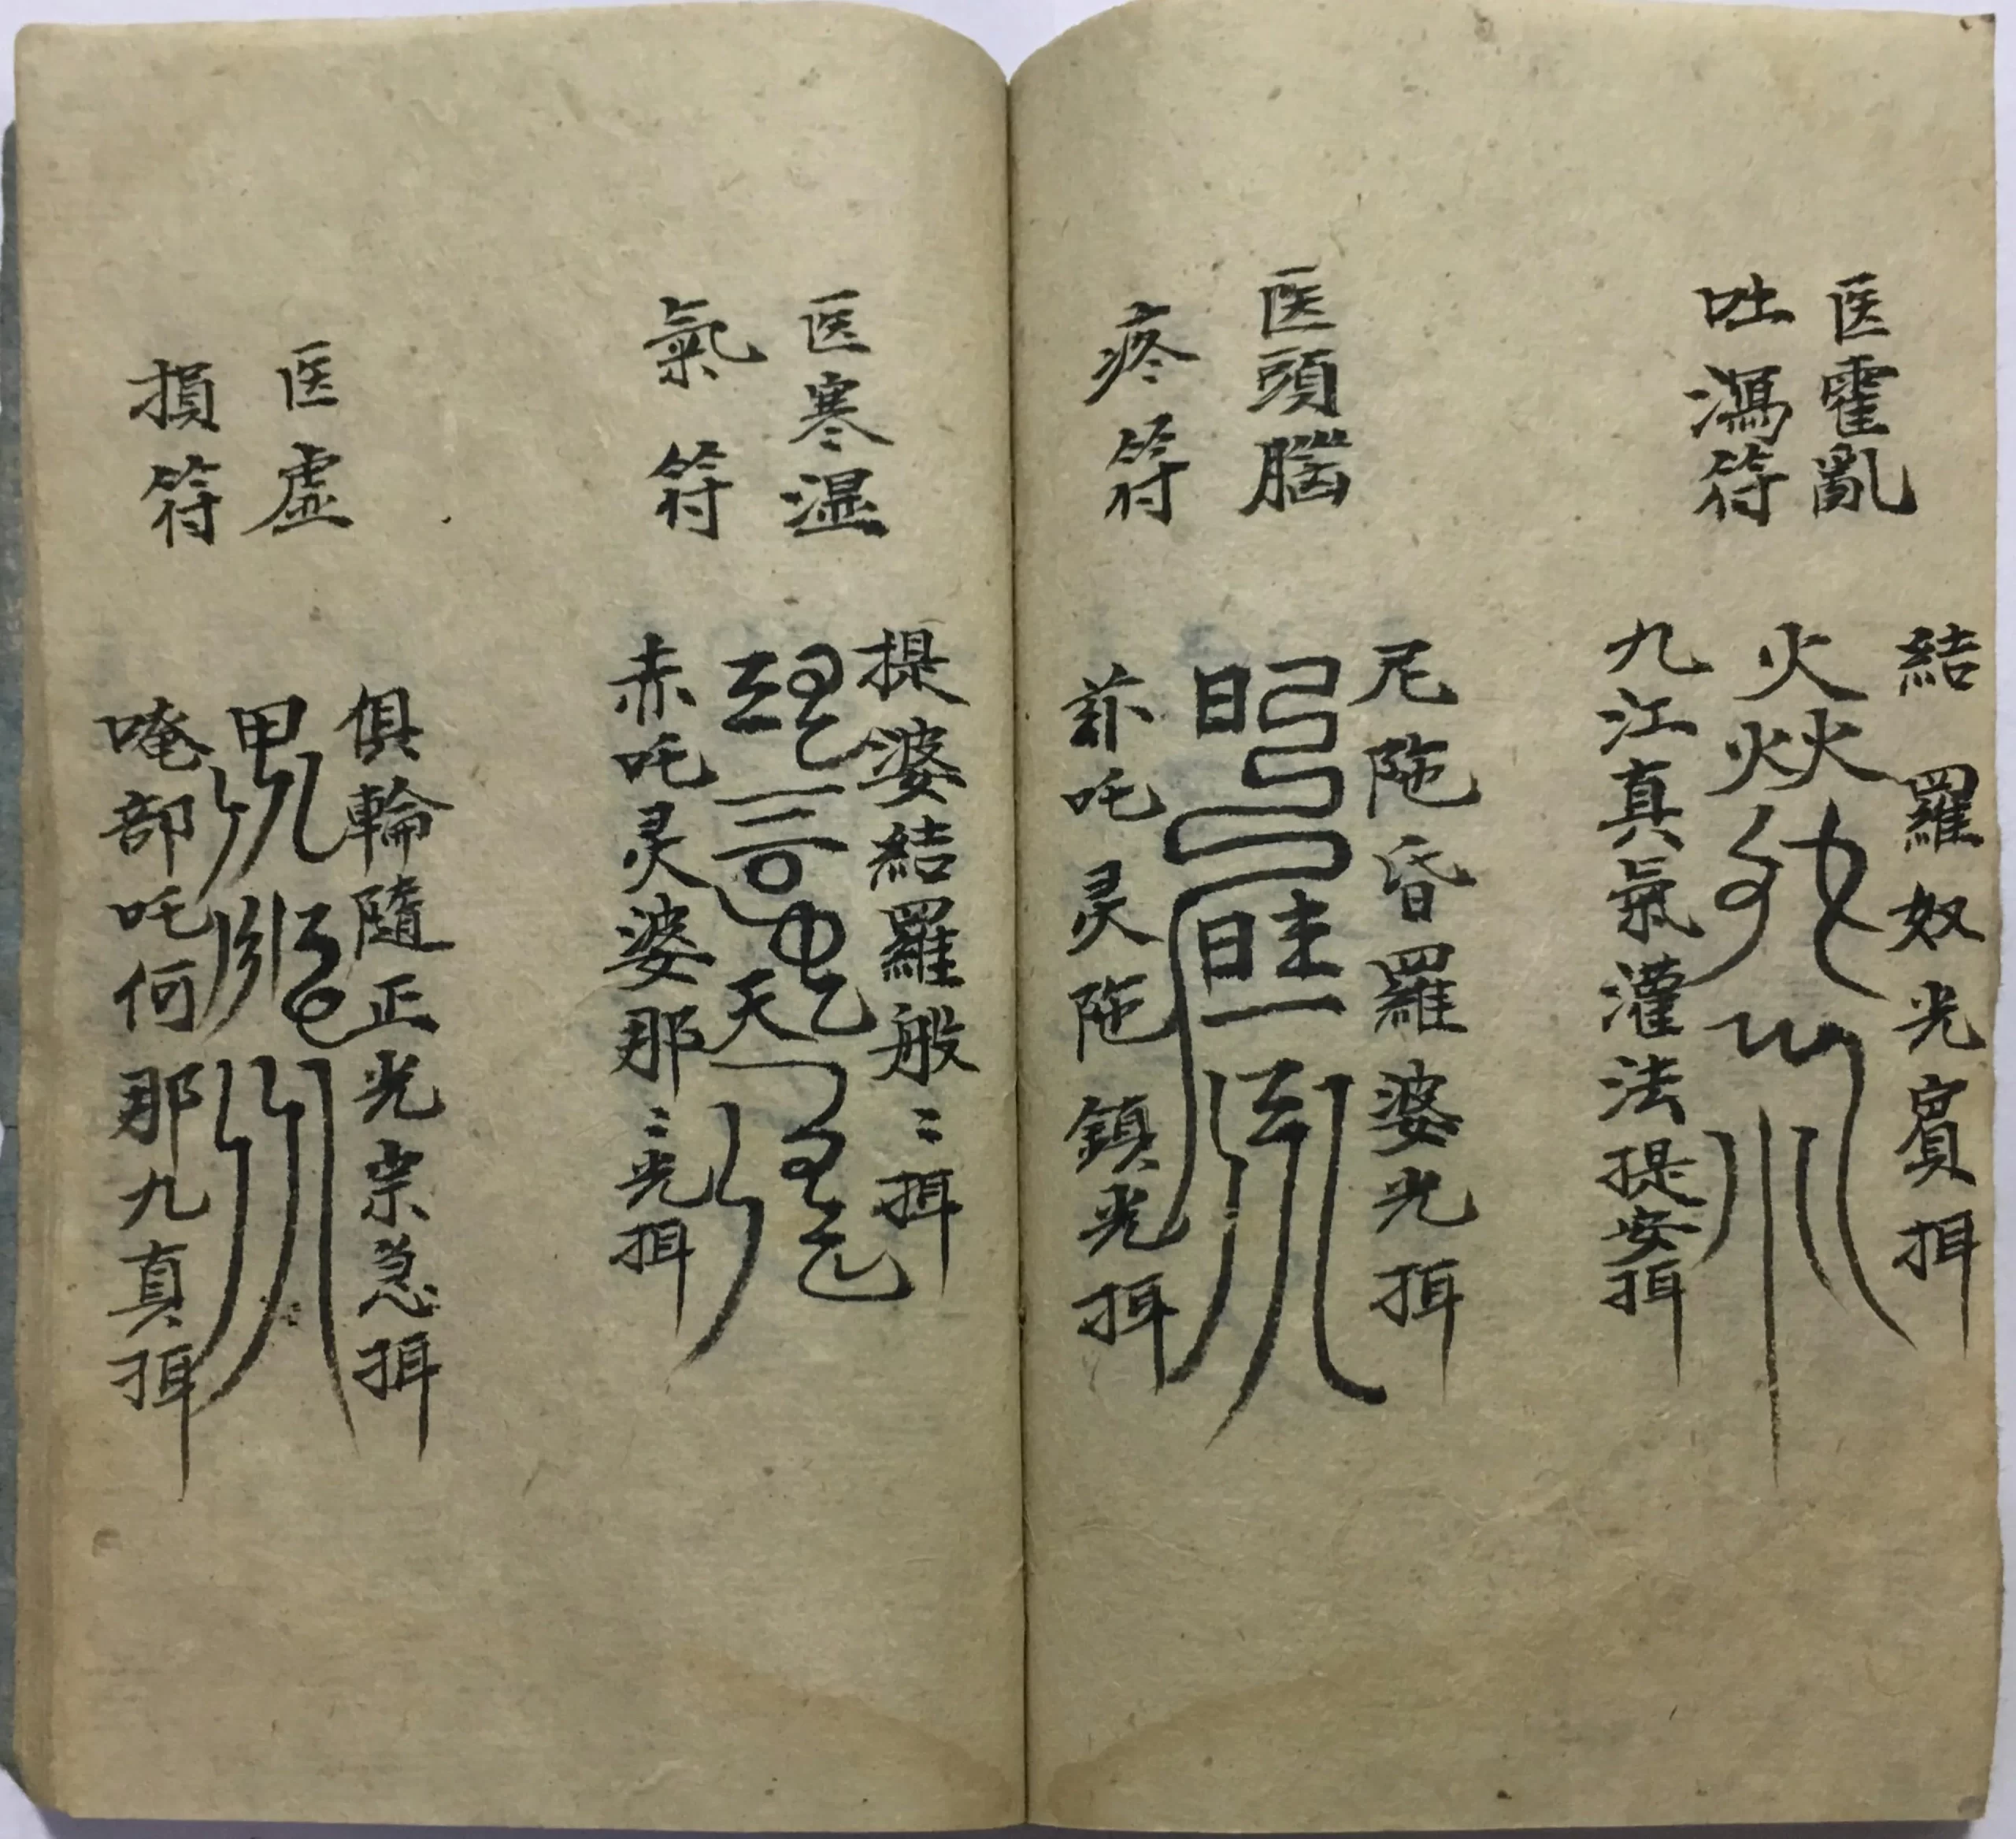 医霍亂
吐瀉符
結羅奴光賓揖
九江真氣灌法提安揖
医頭腦
疼符
尼陁昏羅婆光揖
吒灵陁鎮光揖
医寒湿
氣符
提婆結羅般〻揖
赤吒灵婆那〻光揖
医虛
損符
俱輪隨正光宗急揖
唵部吒何那九真揖